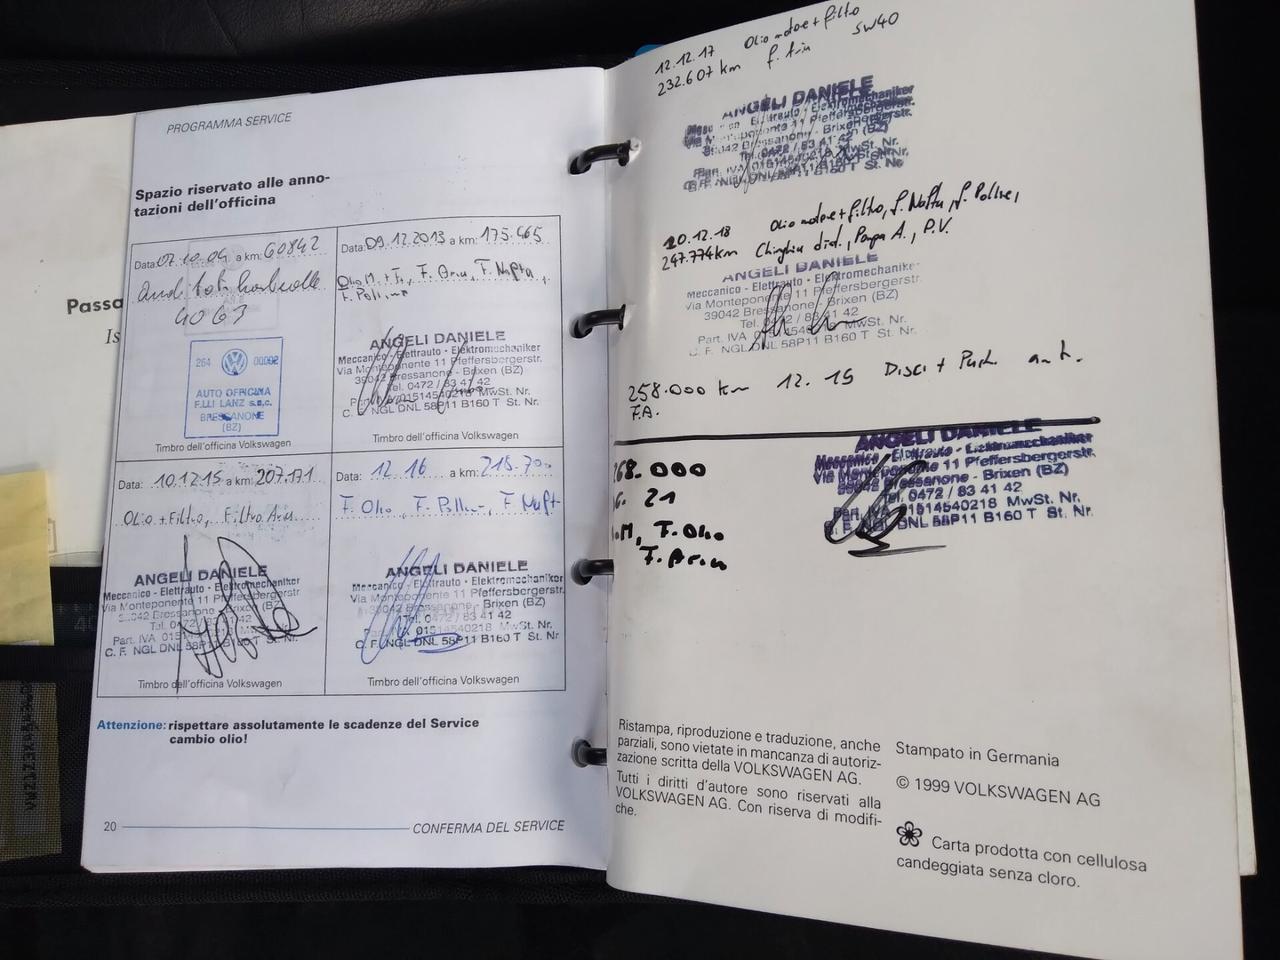 PROGRAMMA SERVICE
Spazio riservato alle anno-
tazioni dell'officina
Data: 07.10.04 a km: 60842
4063
264 00002
AUTO OFFICINA
F.LLI LANZ s.n.c.
BRESSANONE
(BZ)
Timbro dell'officina Volkswagen
Data: 09.12.2013 a km: 175.465
Olio M. + F., F. Aria, F. Nafta,
F. Polline
ANGELI DANIELE
Meccanico - Elettrauto - Elektromechaniker
Via Monteponente 11 Pfeffersbergerstr.
39042 Bressanone - Brixen (BZ)
Tel. 0472 / 83 41 42
Part. IVA 01514540218 MwSt. Nr.
C. F. NGL DNL 58P11 B160 T St. Nr.
Timbro dell'officina Volkswagen
Data: 10.12.15 a km: 207.171
Olio + Filtro, Filtro Aria
ANGELI DANIELE
Meccanico - Elettrauto - Elektromechaniker
Via Monteponente 11 Pfeffersbergerstr
39042 Bressanone - Brixen (BZ)
Tel. 0472 / 83 41 42
Part. IVA 01514540218 MwSt. Nr.
C. F. NGL DNL 58P11 B160 T St. Nr.
Timbro dell'officina Volkswagen
Data: 12.16 a km: 218.700
F. Olio, F. Polline, F. Naft
ANGELI DANIELE
Meccanico - Elettrauto - Elektromechaniker
Via Monteponente 11 Pfeffersbergerstr.
39042 Bressanone - Brixen (BZ)
Tel. 0472 / 83 41 42
Part. IVA 01514540218 MwSt. Nr.
C. F. NGL DNL 58P11 B160 T St. Nr.
Timbro dell'officina Volkswagen
Attenzione: rispettare assolutamente le scadenze del Service
cambio olio!
20
CONFERMA DEL SERVICE
Passa
Is
12.12.17 Olio motore + filtro 5W40
232.607 km f. Aria
ANGELI DANIELE
Meccanico - Elettrauto - Elektromechaniker
Via Monteponente 11 Pfeffersbergerstr.
39042 Bressanone - Brixen (BZ)
Tel. 0472 / 83 41 42
Part. IVA 01514540218 MwSt. Nr.
C. F. NGL DNL 58P11 B160 T St. Nr.
20.12.18 Olio motore + filtro, f. Nafta, f. Polline,
247.774 km Cinghia dist., Pompa A., P.V.
ANGELI DANIELE
Meccanico - Elettrauto - Elektromechaniker
Via Monteponente 11 Pfeffersbergerstr.
39042 Bressanone - Brixen (BZ)
Tel. 0472 / 83 41 42
Part. IVA 01514540218 MwSt. Nr.
C. F. NGL DNL 58P11 B160 T St. Nr.
258.000 km 12.19 Disci + Past. ant.
F.A.
268.000
21
.M, F. Olio
F. Aria
ANGELI DANIELE
Meccanico - Elettrauto - Elektromechaniker
Via Monteponente 11 Pfeffersbergerstr.
39042 Bressanone - Brixen (BZ)
Tel. 0472 / 83 41 42
Part. IVA 01514540218 MwSt. Nr.
C. F. NGL DNL 58P11 B160 T St. Nr.
Ristampa, riproduzione e traduzione, anche
parziali, sono vietate in mancanza di autoriz-
zazione scritta della VOLKSWAGEN AG.
Tutti i diritti d'autore sono riservati alla
VOLKSWAGEN AG. Con riserva di modifi-
che.
Stampato in Germania
© 1999 VOLKSWAGEN AG
Carta prodotta con cellulosa
candeggiata senza cloro.